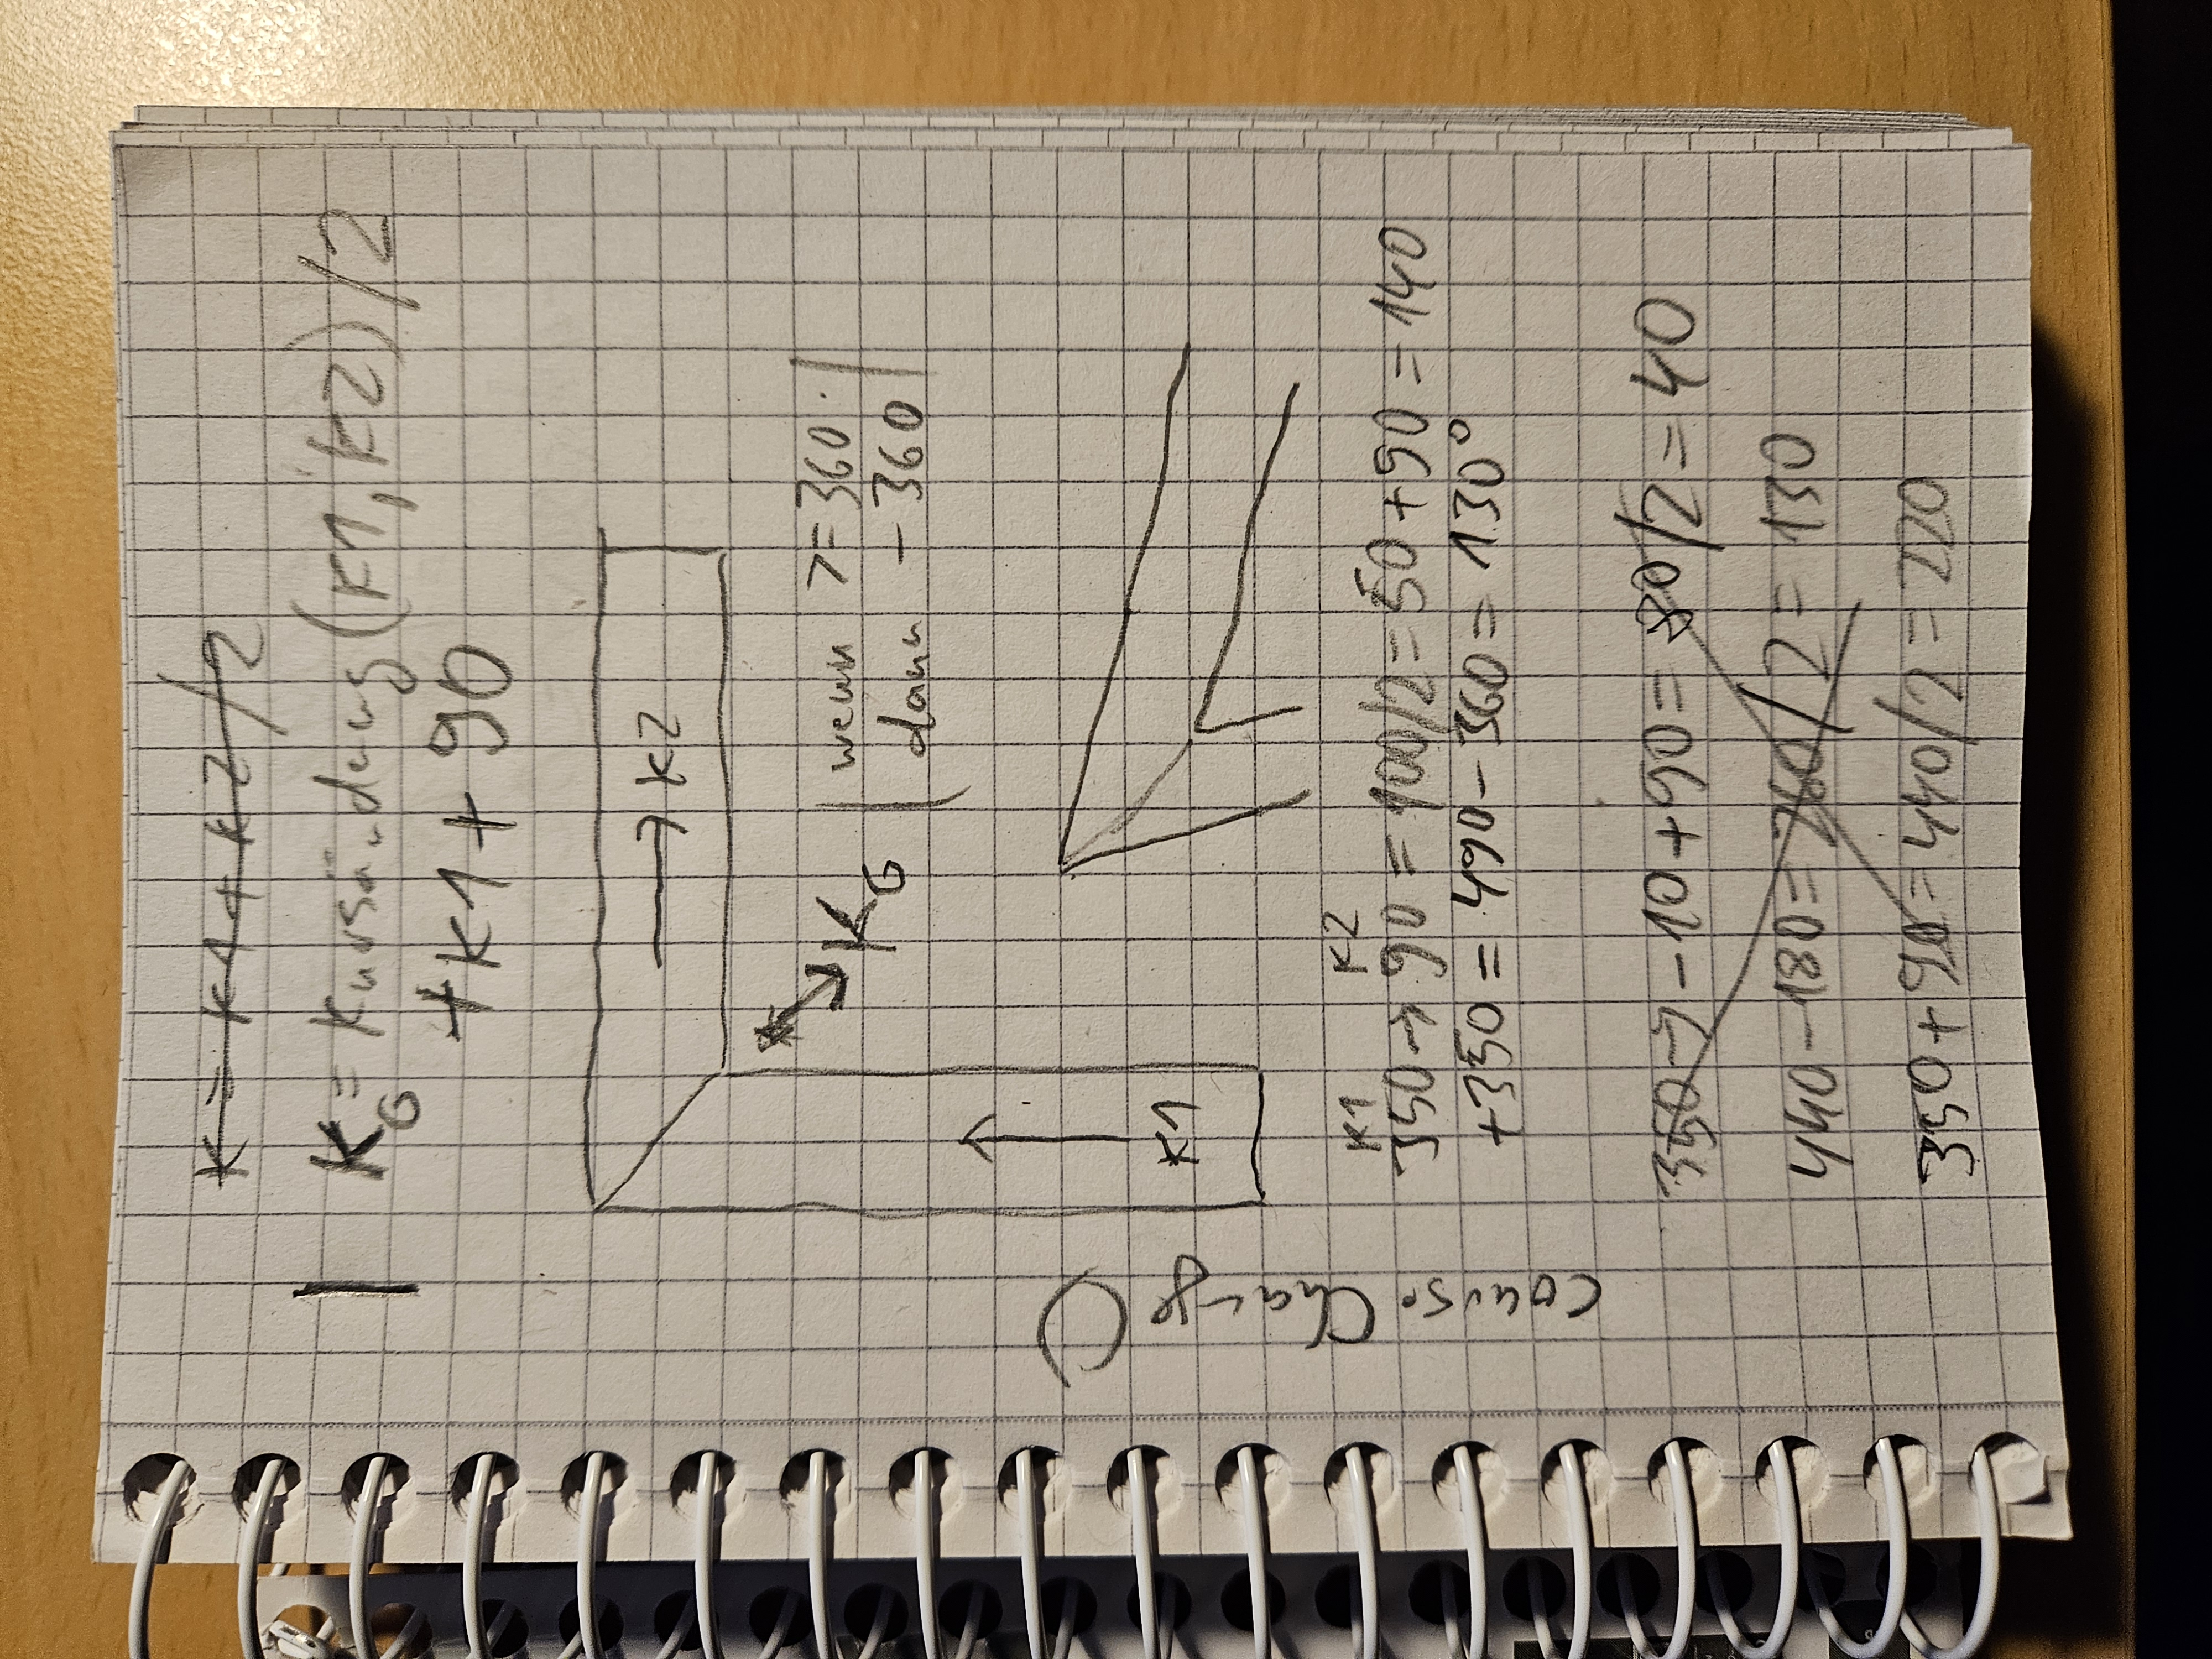 K = K1 + K2 / 2
K_G = Kursändung (K1, K2) / 2
+ K1 + 90
→ K2
K_G
wenn >= 360
dann - 360
↑
K1
Course Change ()
K1 K2
350 → 90 = 100/2 = 50 + 90 = 140
+350 = 490 - 360 = 130°
350 → -10 + 90 = 80/2 = 40
440 - 180 = 260/2 = 130
350 + 90 = 440/2 = 220